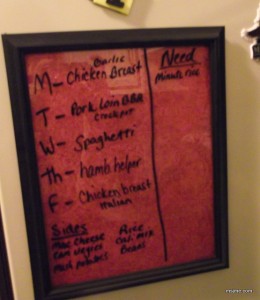 Garlic
M- Chicken Breast
T- Pork Loin BBQ
crockpot
W- Spaghetti
th- hamb helper
F- Chicken breast
italian
Sides
Mac cheese
can vegies
mash potatoes
Rice
Beans
Need
Minute rice